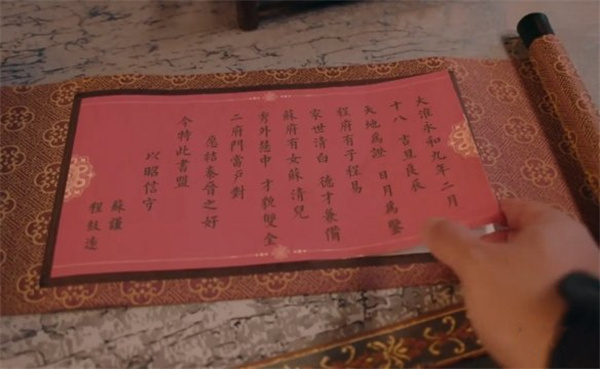 大淮永和九年二月
十八 吉旦良辰
天地為證 日月為鑒
程府有子程易
家世清白 德才兼備
蘇府有女蘇清兒
秀外慧中 才貌雙全
二府門當戶對
愿結秦晉之好
今特此書盟
以昭信守
蘇謹
程